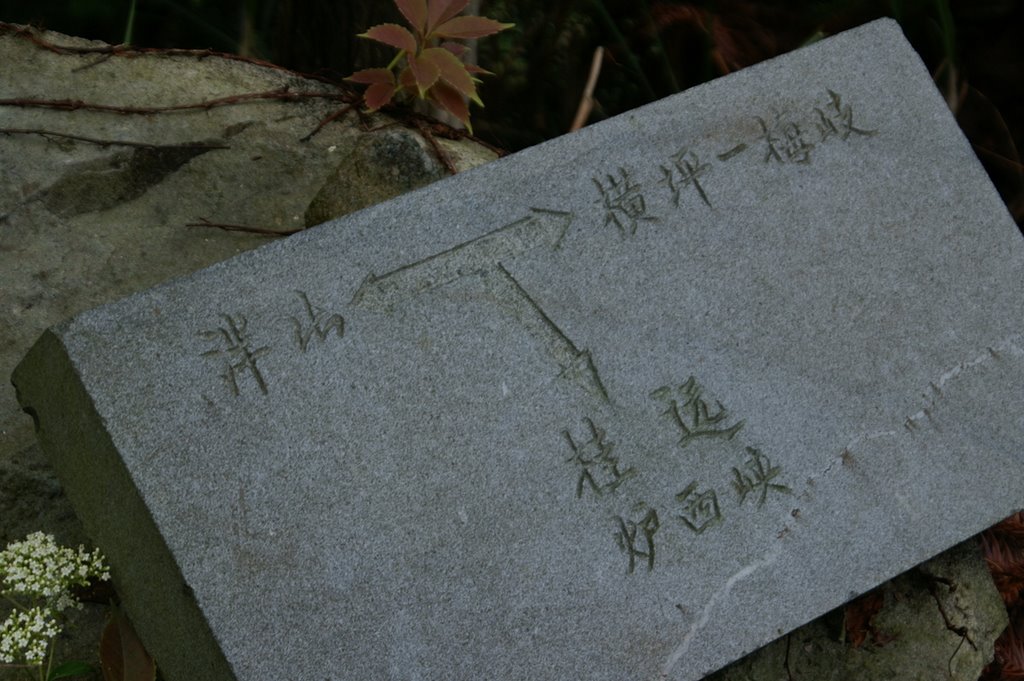 横坪一梅岐
洋山
桂远
炉西峡